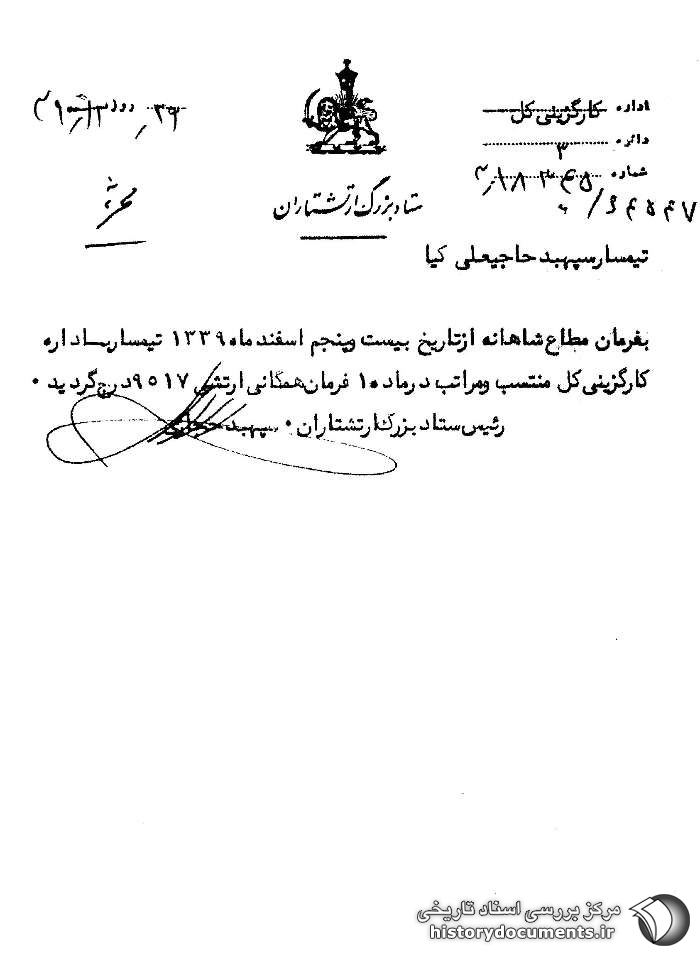 اداره کارگزینی کل
دائره ۳
شماره
ستاد بزرگ ارتشتاران
محرمانه
تیمسار سپهبد حاجیعلی کیا
بفرمان مطاع شاهانه از تاریخ بیست وپنجم اسفند ماه ۱۳۳۹ تیمسار بـاداره
کارگزینی کل منتسب ومراتب درماده ۱۰ فرمان همگانی ارتشی ۹۵۱۷ درج گردید ۰
رئیس ستاد بزرگ ارتشتاران ۰ سپهبد
مرکز بررسی اسناد تاریخی
historydocuments.ir